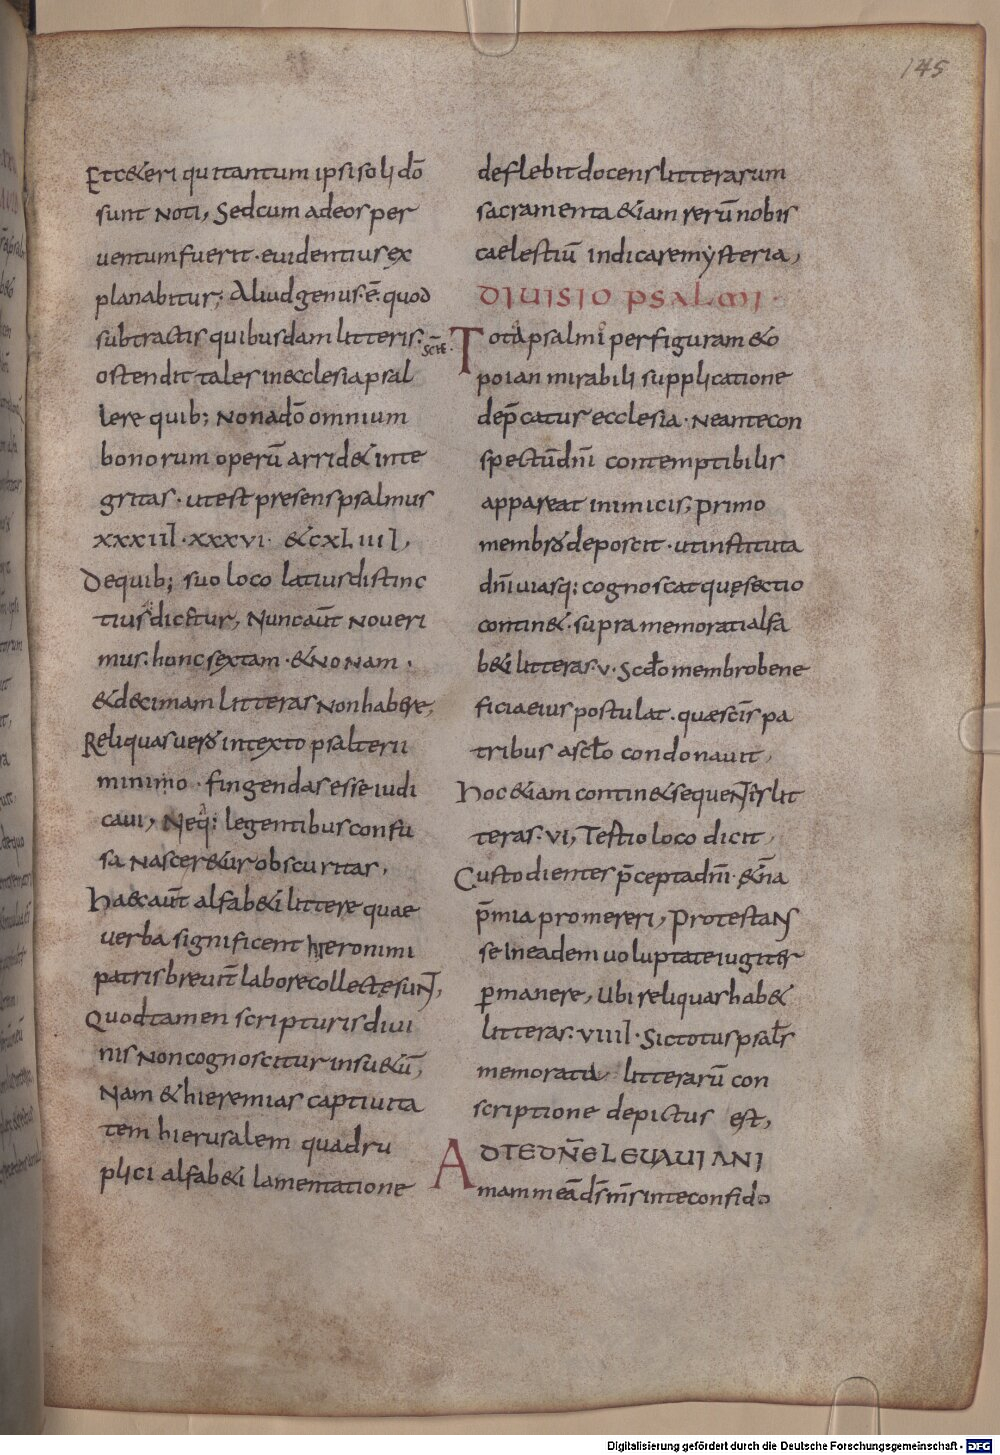 145
Etc&eri quitantum ipsisoli dō
sunt noti, Sedcum adeosper
uentumfuerit · euidentiusex
planabitur; Aliudgenus·ē·quod
subtractis quibusdam litteris·
ostendit tales inecclesiapsal
lere quib; nonadō omnium
bonorum operū arrid& inte
gritas · utest presenspsalmus
xxxiii · xxxvi · &cxliiii,
Dequib; suo loco latiusdistinc
tiusdicetur, Nuncaūt noueri
mus·hunc sextam·&nonam·
&decimam litteras nonhabere,
Reliquasuero intexto psalterii
minimo · fingendasesse iudi
caui, Neq: legentibus confu
sa nascer&ur obscuritas,
Haecaūt alfab&i littere quae
uerba significent hieronimi
patrisbreuit labore collectesunt,
Quodtamen scripturis diui
nis noncognoscitur insu&ū,
Nam & hieremias captiuita
tem hierusalem quadru
plici alfab&i lamentatione
deflebit docenslitterarum
sacramenta &iam rerū nobis
caelestiū indicare mysteria,
DIUISIO PSALMI ·
Tota psalmi perfiguram &o
poian mirabili supplicatione
dep̄catur ecclesia · Neantecon
spectūdn̄i contemptibilis
appareat inimicis, primo
membro deposcit · utinstituta
dn̄i uiasq: cognoscat quęsectio
contin&· supra memoratialfa
b&i litteras·v· Scdo membrobene
ficiaeius postulat · quaescīs pa
tribus asclo condonauit,
Hoc&iam contin&sequentis lit
teras·vi, Tertio loco dicit,
Custodientes p̄cepta dn̄i &n̄a
p̄mia promereri, Protestans
se ineadem uoluptate iugiter
permanere, Ubi reliquas hab&
litteras·viiii· Sictotuspsal̄s
memorata litterarū con
scriptione depictus est,
ADTEDN̄ELEUAUI ANI
mammeā ds̄ms̄ inteconfido
Digitalisierung gefördert durch die Deutsche Forschungsgemeinschaft - DFG